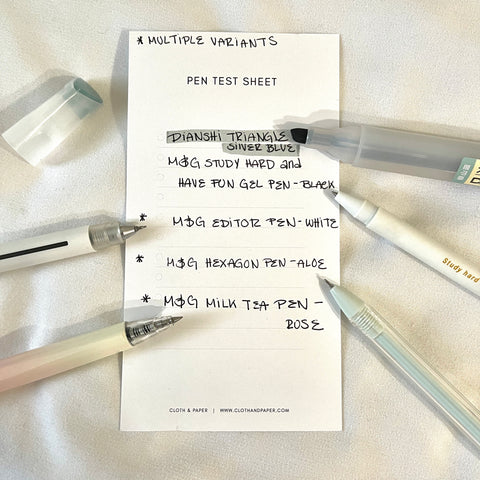 * MULTIPLE VARIANTS
PEN TEST SHEET
DIANSHI TRIANGLE
SILVER BLUE
M$G STUDY HARD and
HAVE FUN GEL PEN - BLACK
* M$G EDITOR PEN - WHITE
* M$G HEXAGON PEN - ALOE
* M$G MILK TEA PEN -
ROSE
CLOTH & PAPER | WWW.CLOTHANDPAPER.COM
Study hard